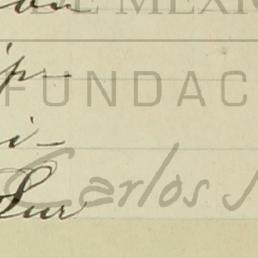 DE MEXICO
ip-
FUNDAC
i-
Carlos
Sur